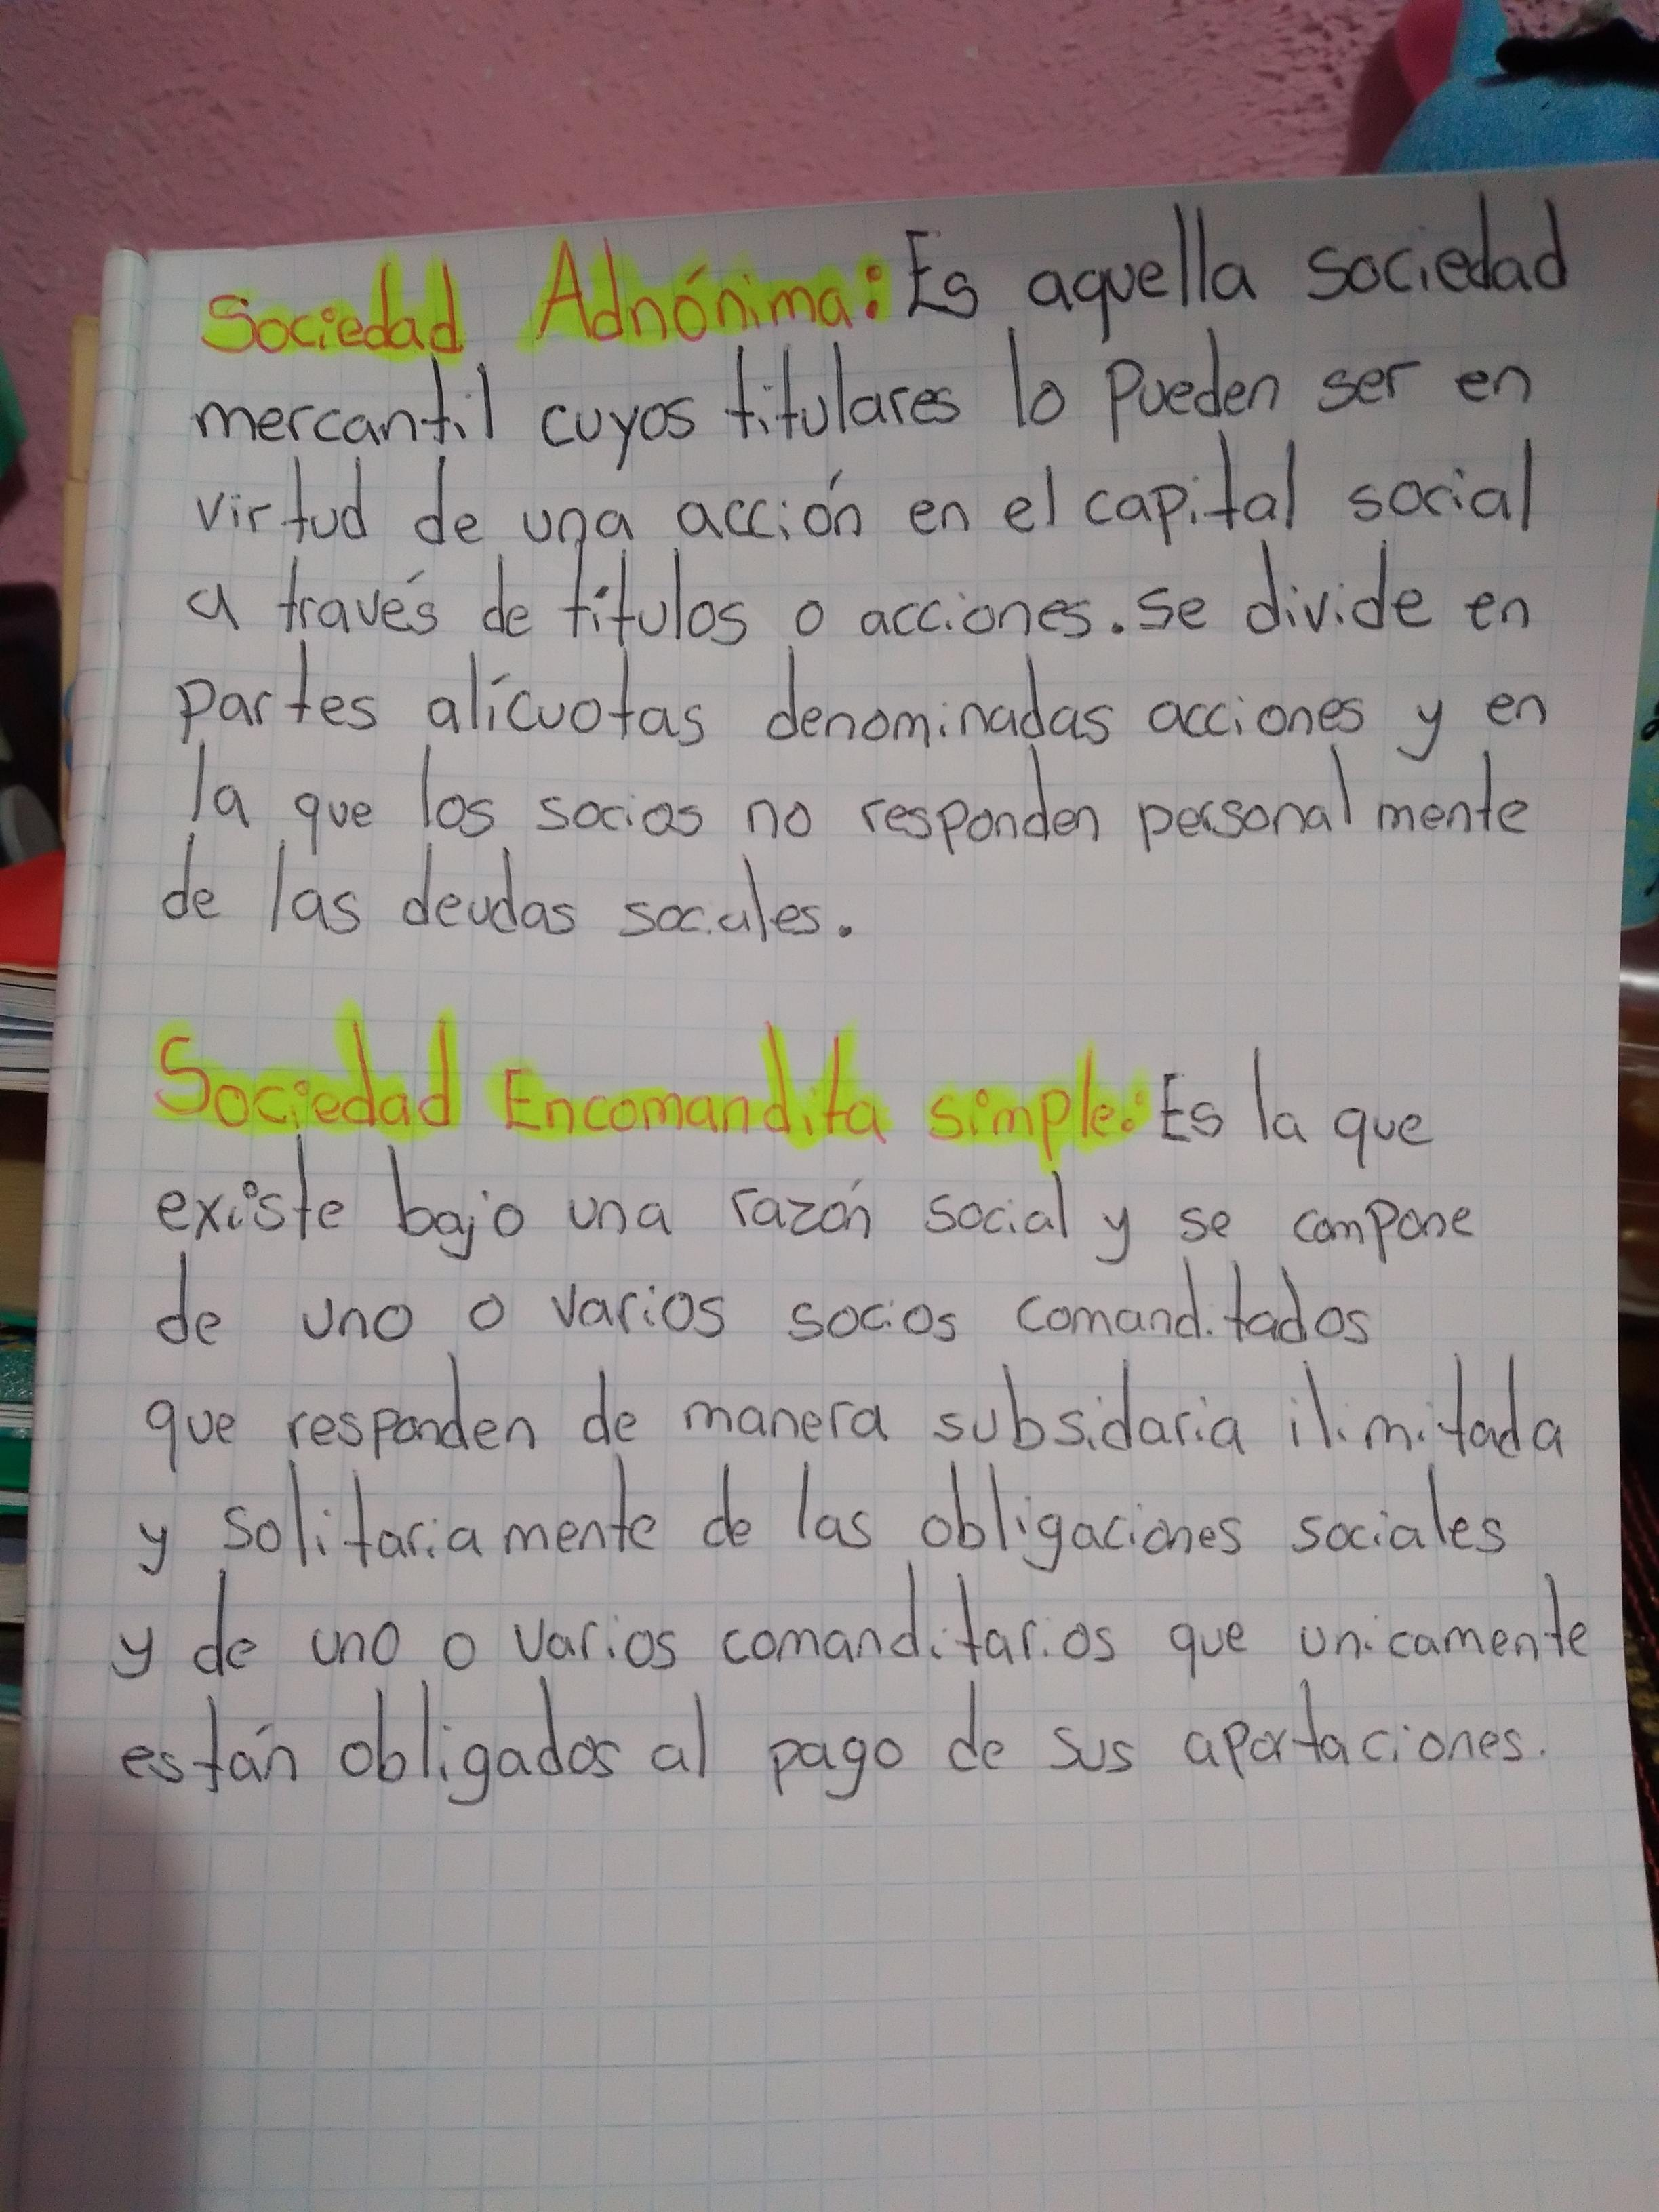 Sociedad Adnónima: Es aquella sociedad
mercantil cuyos titulares lo pueden ser en
virtud de una acción en el capital social
a través de títulos o acciones. se divide en
partes alícuotas denominadas acciones y en
la que los socios no responden personalmente
de las deudas sociales.
Sociedad Encomandita simple: Es la que
existe bajo una razón social y se compone
de uno o varios socios comanditados
que responden de manera subsidaria ilimitada
y solitariamente de las obligaciones sociales
y de uno o varios comanditarios que unicamente
están obligados al pago de sus aportaciones.